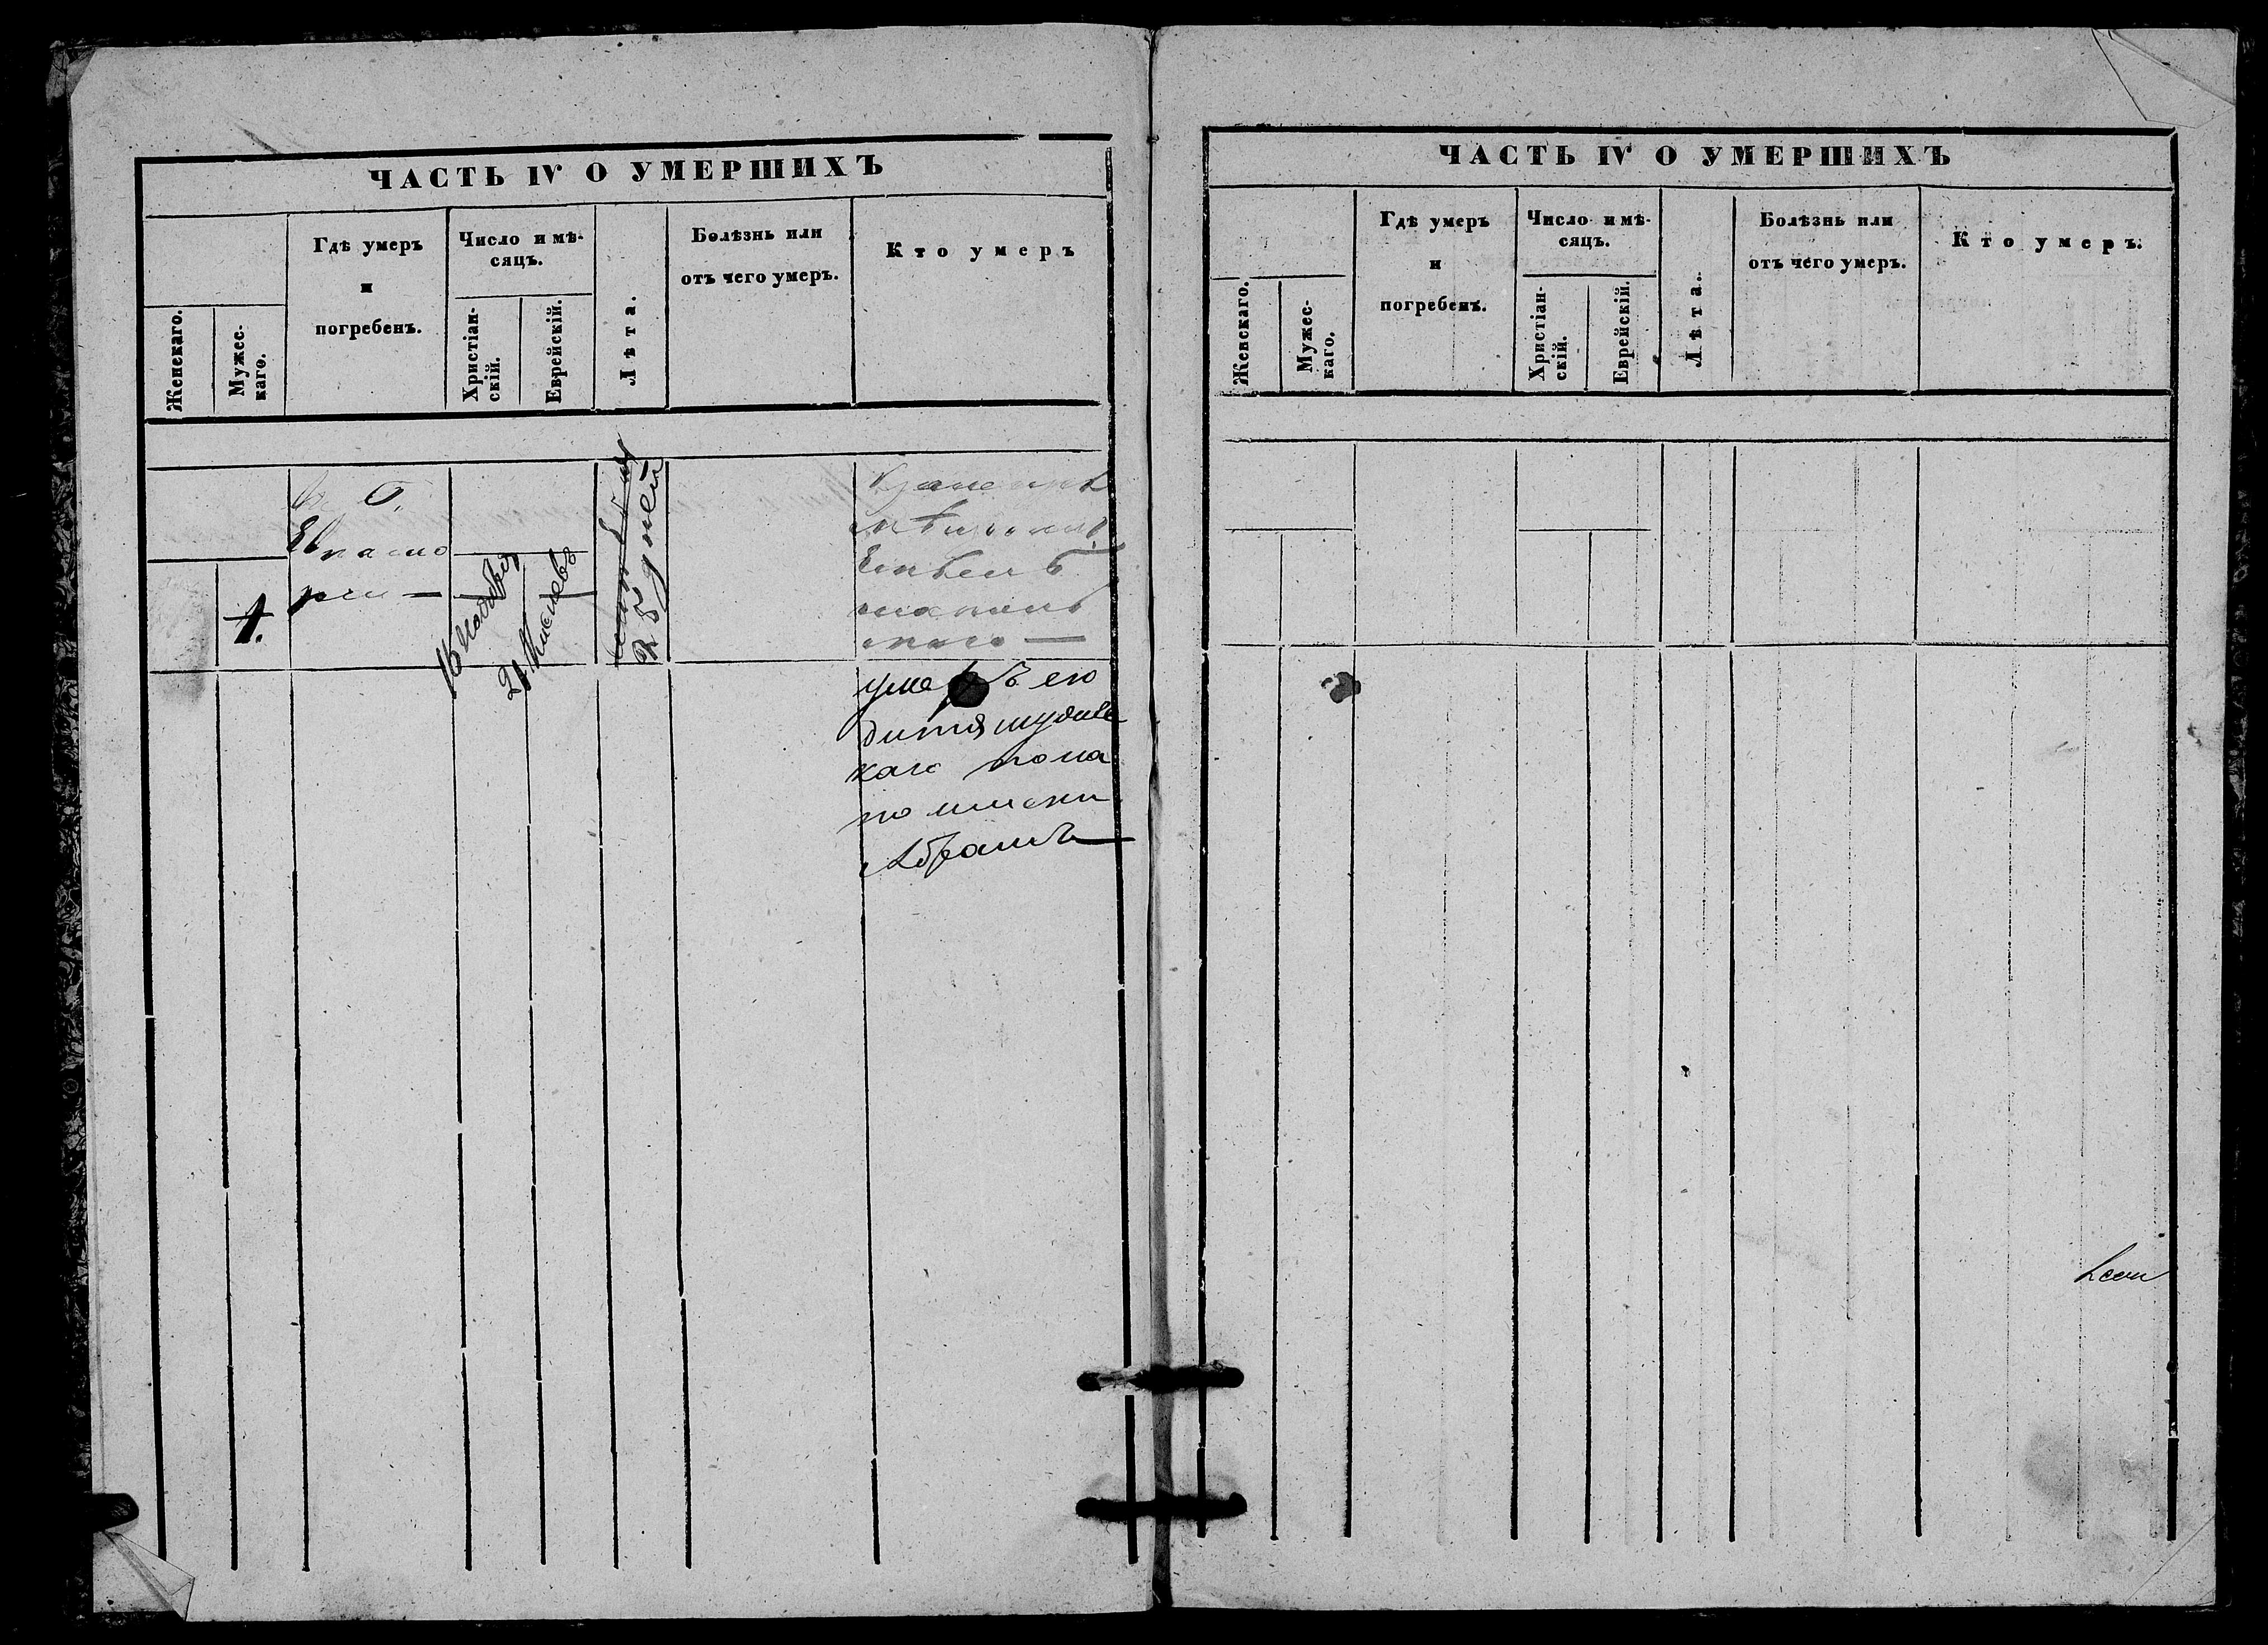 ЧАСТЬ IV О УМЕРШИХЪ
Женскаго.
Мужес-
каго.
Гдѣ умеръ
и
погребенъ.
Число и мѣ-
сяцъ.
Христіан-
скій.
Еврейскій.
Лѣта.
Болѣзнь или
отъ чего умеръ.
Кто умеръ
1.
въ
Евпато
ріи —
16 Ноября
21 Кислевъ
25 дней
умеръ его
дитя мужес
каго пола
по имени
Абрамъ —
ЧАСТЬ IV О УМЕРШИХЪ
Женскаго.
Мужес-
каго.
Гдѣ умеръ
и
погребенъ.
Число и мѣ-
сяцъ.
Христіан-
скій.
Еврейскій.
Лѣта.
Болѣзнь или
отъ чего умеръ.
Кто умеръ.